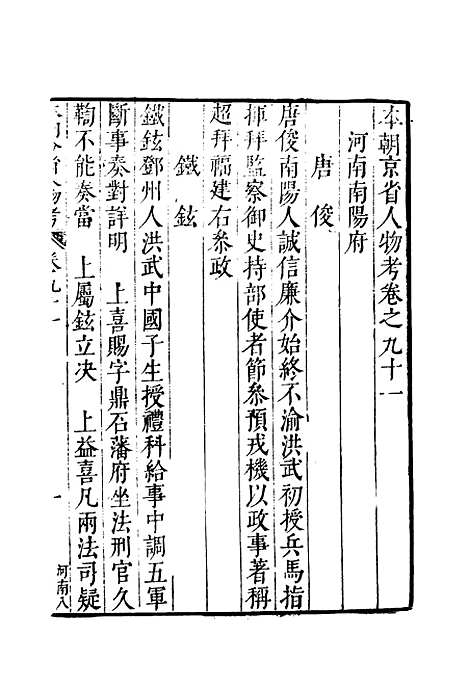 本朝京省人物考卷之九十一
河南南陽府
唐俊
唐俊南陽人誠信廉介始終不渝洪武初授兵馬指
揮拜監察御史持部使者節叅預戎機以政事著稱
超拜福建右叅政
鐵鉉
鐵鉉鄧州人洪武中國子生授禮科給事中調五軍
斷事奏對詳明　上喜賜字鼎石藩府坐法刑官久
鞫不能奏當　上屬鉉立决　上益喜凡兩法司疑
人物考　卷九十一　一　河南八